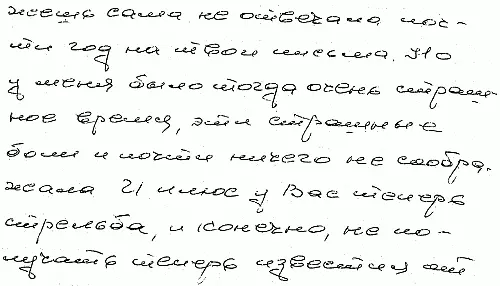 жешь сама не отвечала поч-
ти год на твои письма. Но
у меня было тогда очень страш-
ное время, эти страшные
боли и почти ничего не сообра-
жала И плюс у Вас теперь
стрельба, и конечно, не по-
лучать теперь известия от